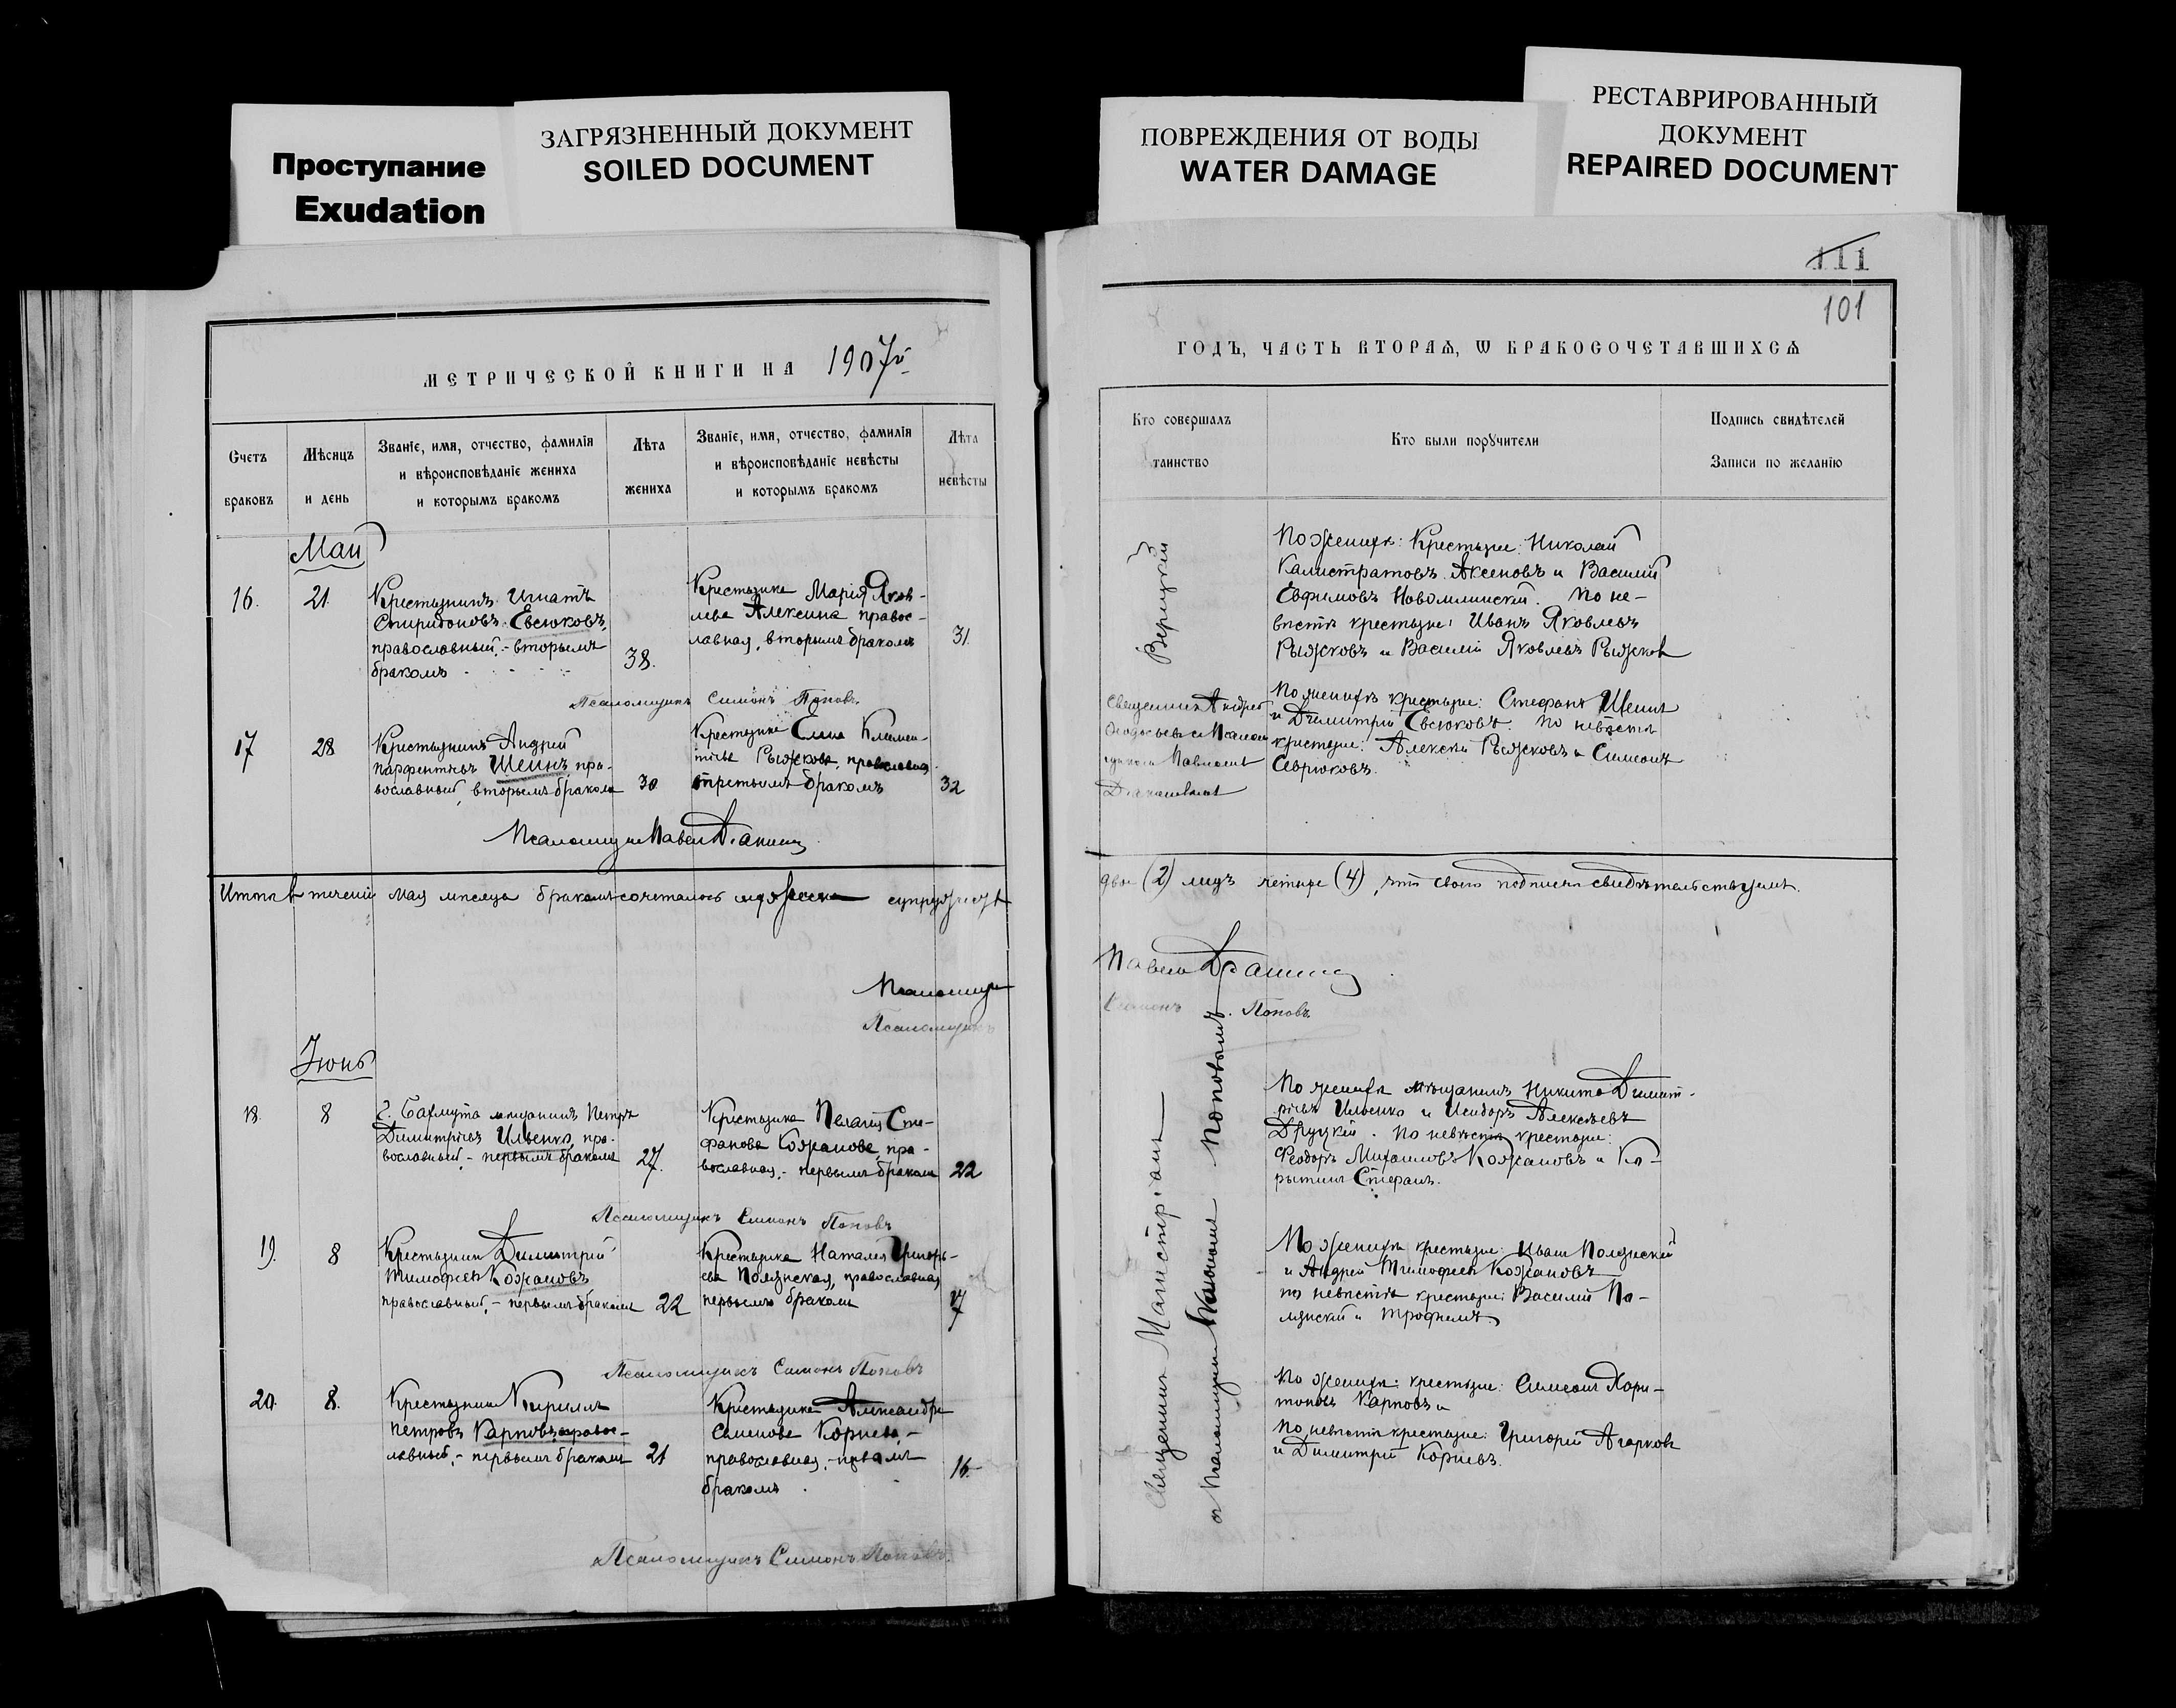 Проступание
Exudation
ЗАГРЯЗНЕННЫЙ ДОКУМЕНТ
SOILED DOCUMENT
ПОВРЕЖДЕНИЯ ОТ ВОДЫ
WATER DAMAGE
РЕСТАВРИРОВАННЫЙ
ДОКУМЕНТ
REPAIRED DOCUMENT
МЕТРИЧЕСКОЙ КНИГИ НА 1907й
Счетъ
браковъ
Мѣсяцъ
и день
Званіе, имя, отчество, фамилія
и вѣроисповѣданіе жениха
и которымъ бракомъ
Лѣта
жениха
Званіе, имя, отчество, фамилія
и вѣроисповѣданіе невѣсты
и которымъ бракомъ
Лѣта
невѣсты
Май
16. 21.
Крестьянинъ Игнатъ
Спиридоновъ Евсюковъ,
православный,- вторымъ
бракомъ
38.
Крестьянка Марія Яков-
лева Алексина правос-
лавная, вторымъ бракомъ
31.
Псаломщикъ Симонъ Поповъ.
17 28
Крестьянинъ Андрей
Парфентьевъ Шеинъ, пра-
вославный, вторымъ бракомъ
30
Крестьянка Елена Клемен-
тьева Рыжкова, православная
третьимъ бракомъ
32
Псаломщик Павел
Итого в течении мая месяца бракомъ сочеталось супружествъ
Псаломщик
Псаломщикъ
Іюнь
18. 8
г. Бахмута мещанинъ Петръ
Димитріевъ Ильенко, пра-
вославный,- первымъ бракомъ
27.
Крестьянка Пелагія Сте-
фанова Кожанова, пра-
вославная,- первымъ бракомъ
22
Псаломщикъ Симонъ Поповъ
19. 8
Крестьянинъ Димитрій
Тимофеев Кожановъ
православный,- первымъ бракомъ
22
Крестьянка Наталія Григорь-
ева Полянская, православная
первымъ бракомъ
17
Псаломщикъ Симонъ Поповъ
20. 8.
Крестьянинъ Кириллъ
Петровъ Карповъ, правос-
лавный,- первымъ бракомъ
21
Крестьянка Александра
Семенова Корнева,-
православная,- первымъ
бракомъ
16.-
Псаломщикъ Симонъ Поповъ.
111
101
ГОДЪ, ЧАСТЬ ВТОРАЯ, Ѡ БРАКОСОЧЕТАВШИХСЯ
Кто совершалъ
таинство
Кто были поручители
Подпись свидѣтелей
Записи по желанію
Верицкій
По женихѣ: Крестьяне: Николай
Калистратовъ Аксеновъ и Василій
Евфимовъ Новомлинскій. По не-
вѣстѣ крестьяне: Иванъ Яковлевъ
Рыжковъ и Василій Яковлевъ Рыжков
Священник Андрей
По женихѣ крестьяне: Стефанъ Шеинъ
и Димитрій Евсюковъ. По невѣстѣ
крестьяне: Алексѣй Рыжковъ и Симеонъ
Севрюковъ.
двое (2) лицъ четыре (4), что своею подписью свидѣтельствуемъ.
Павелъ
Симонъ Поповъ.
Священникъ
Поповымъ
По женихѣ мѣщанинъ Никита Димит-
ріевъ Ильенко и Исидоръ Алексѣевъ
Друцкій. По невѣстѣ крестьяне:
Феодоръ Михаиловъ Кожановъ и Ко-
рытинъ Стефанъ.
По женихѣ крестьяне: Иванъ Полянскій
и Андрей Тимофеев Кожановъ
по невѣстѣ крестьяне: Василій По-
лянскій и Трофимъ.
По женихѣ: крестьяне: Симеонъ Хари-
тоновъ Карповъ и
По невѣстѣ крестьяне: Григорій Агарковъ
и Димитрій Корневъ.